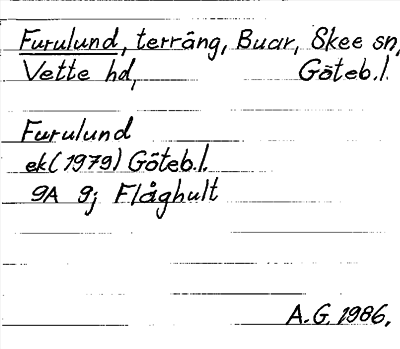 Furulund, terräng, Buar, Skee sn,
Vette hd, Göteb.l.
Furulund
ek (1979) Göteb.l.
9A 9j Flåghult
A.G. 1986.